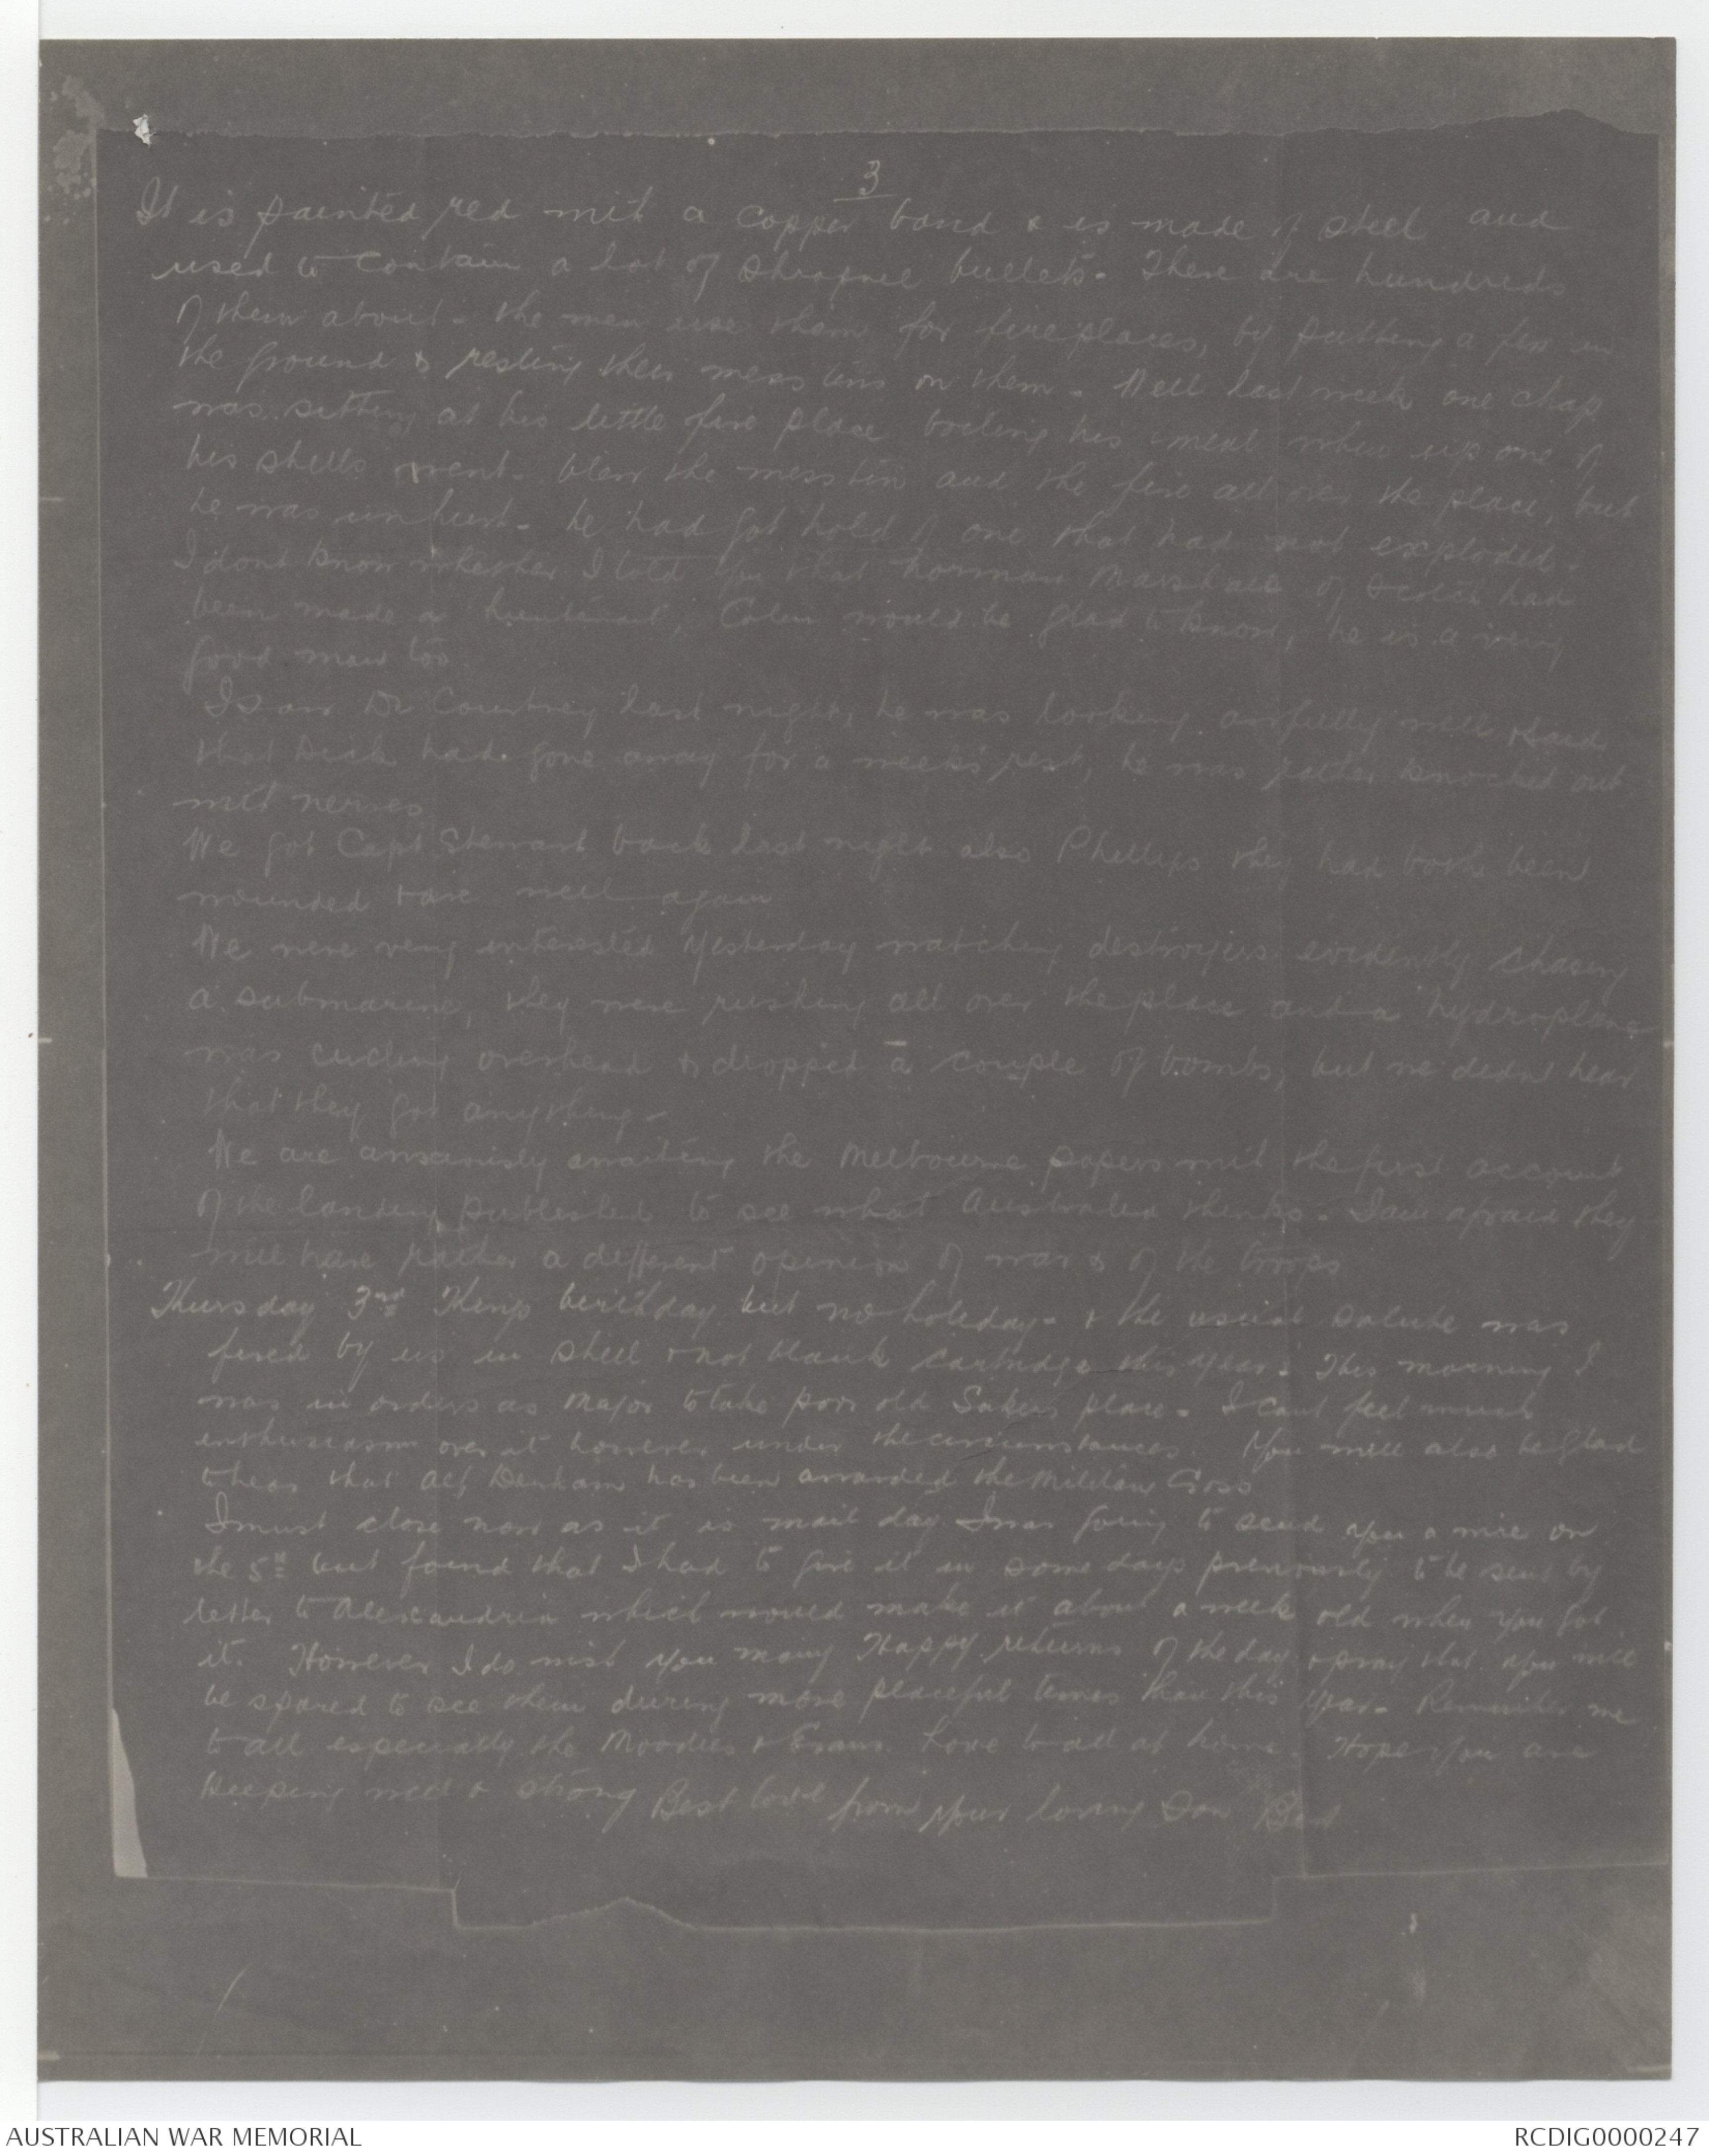 3
It is painted red with a copper band & is made of steel and
used to contain a lot of shrapnel bullets. There are hundreds
of them about - the men use them for fireplaces, by putting a few in
the ground & resting their mess tins on them. Well last week one chap
was sitting at his little fire place boiling his meal when up one of
his shells went. blew the mess tin and the fire all over the place, but
he was unhurt - he had got hold of one that had not exploded.
I dont know whether I told you that Norman Marshall of Scotch had
been made a lieutenant, Colin would be glad to know, he is a very
good man too.
I saw Dr Courtney last night, he was looking awfully well & said
that Dick had gone away for a week's rest, he was rather knocked out
with nerves
We got Capt Stewart back last night also Phillips they had both been
wounded & are well again
We were very interested yesterday watching destroyers evidently chasing
a submarine, they were rushing all over the place and a hydroplane
was circling overhead & dropped a couple of bombs, but we didnt hear
that they got anything -
We are anxiously awaiting the Melbourne papers with the first account
of the landing published to see what Australia thinks. I am afraid they
will have rather a different opinion of war & of the troops
Thursday 3rd Kings birthday but no holiday - & the usual salute was
fired by us in shell & not blank cartridge this year. This morning I
was in orders as Major to take poor old Sakers place. I cant feel much
enthusiasm over it however under the circumstances. You will also be glad
to hear that Alf Denham has been awarded the Military Cross
I must close now as it is mail day I was going to send you a wire on
the 5th but found that I had to give it in some days previously to be sent by
letter to Alexandria which would make it about a week old when you got
it. However I do wish you many Happy returns of the day & pray that you will
be spared to see them during more peaceful times than this year. Remember me
to all especially the Moodies & Evans. Love to all at home. Hope you are
keeping well & strong Best love from your loving Son Bert
AUSTRALIAN WAR MEMORIAL
RCDIG0000247